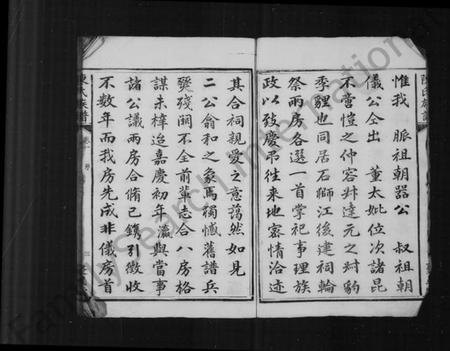 惟我 脈祖朝器公 叔祖朝
儀公仝出 董太妣位次諸昆
不啻愷之仲容舛達元之對豹
季貍也同居石獅江後建祠輪
祭兩房各選一首掌祀事理族
政以致慶弔往來地密情洽迹
其合祠親愛之意藹然如見
二公翁和之象焉獨憾舊譜兵
燹殘闕不全前輩志合八房格
謀未樟迨嘉慶初年瀛與當事
諸公議兩房合脩已鐫引徵收
不數年而我房先成非儀房首
陳氏族譜
FamilySearch International